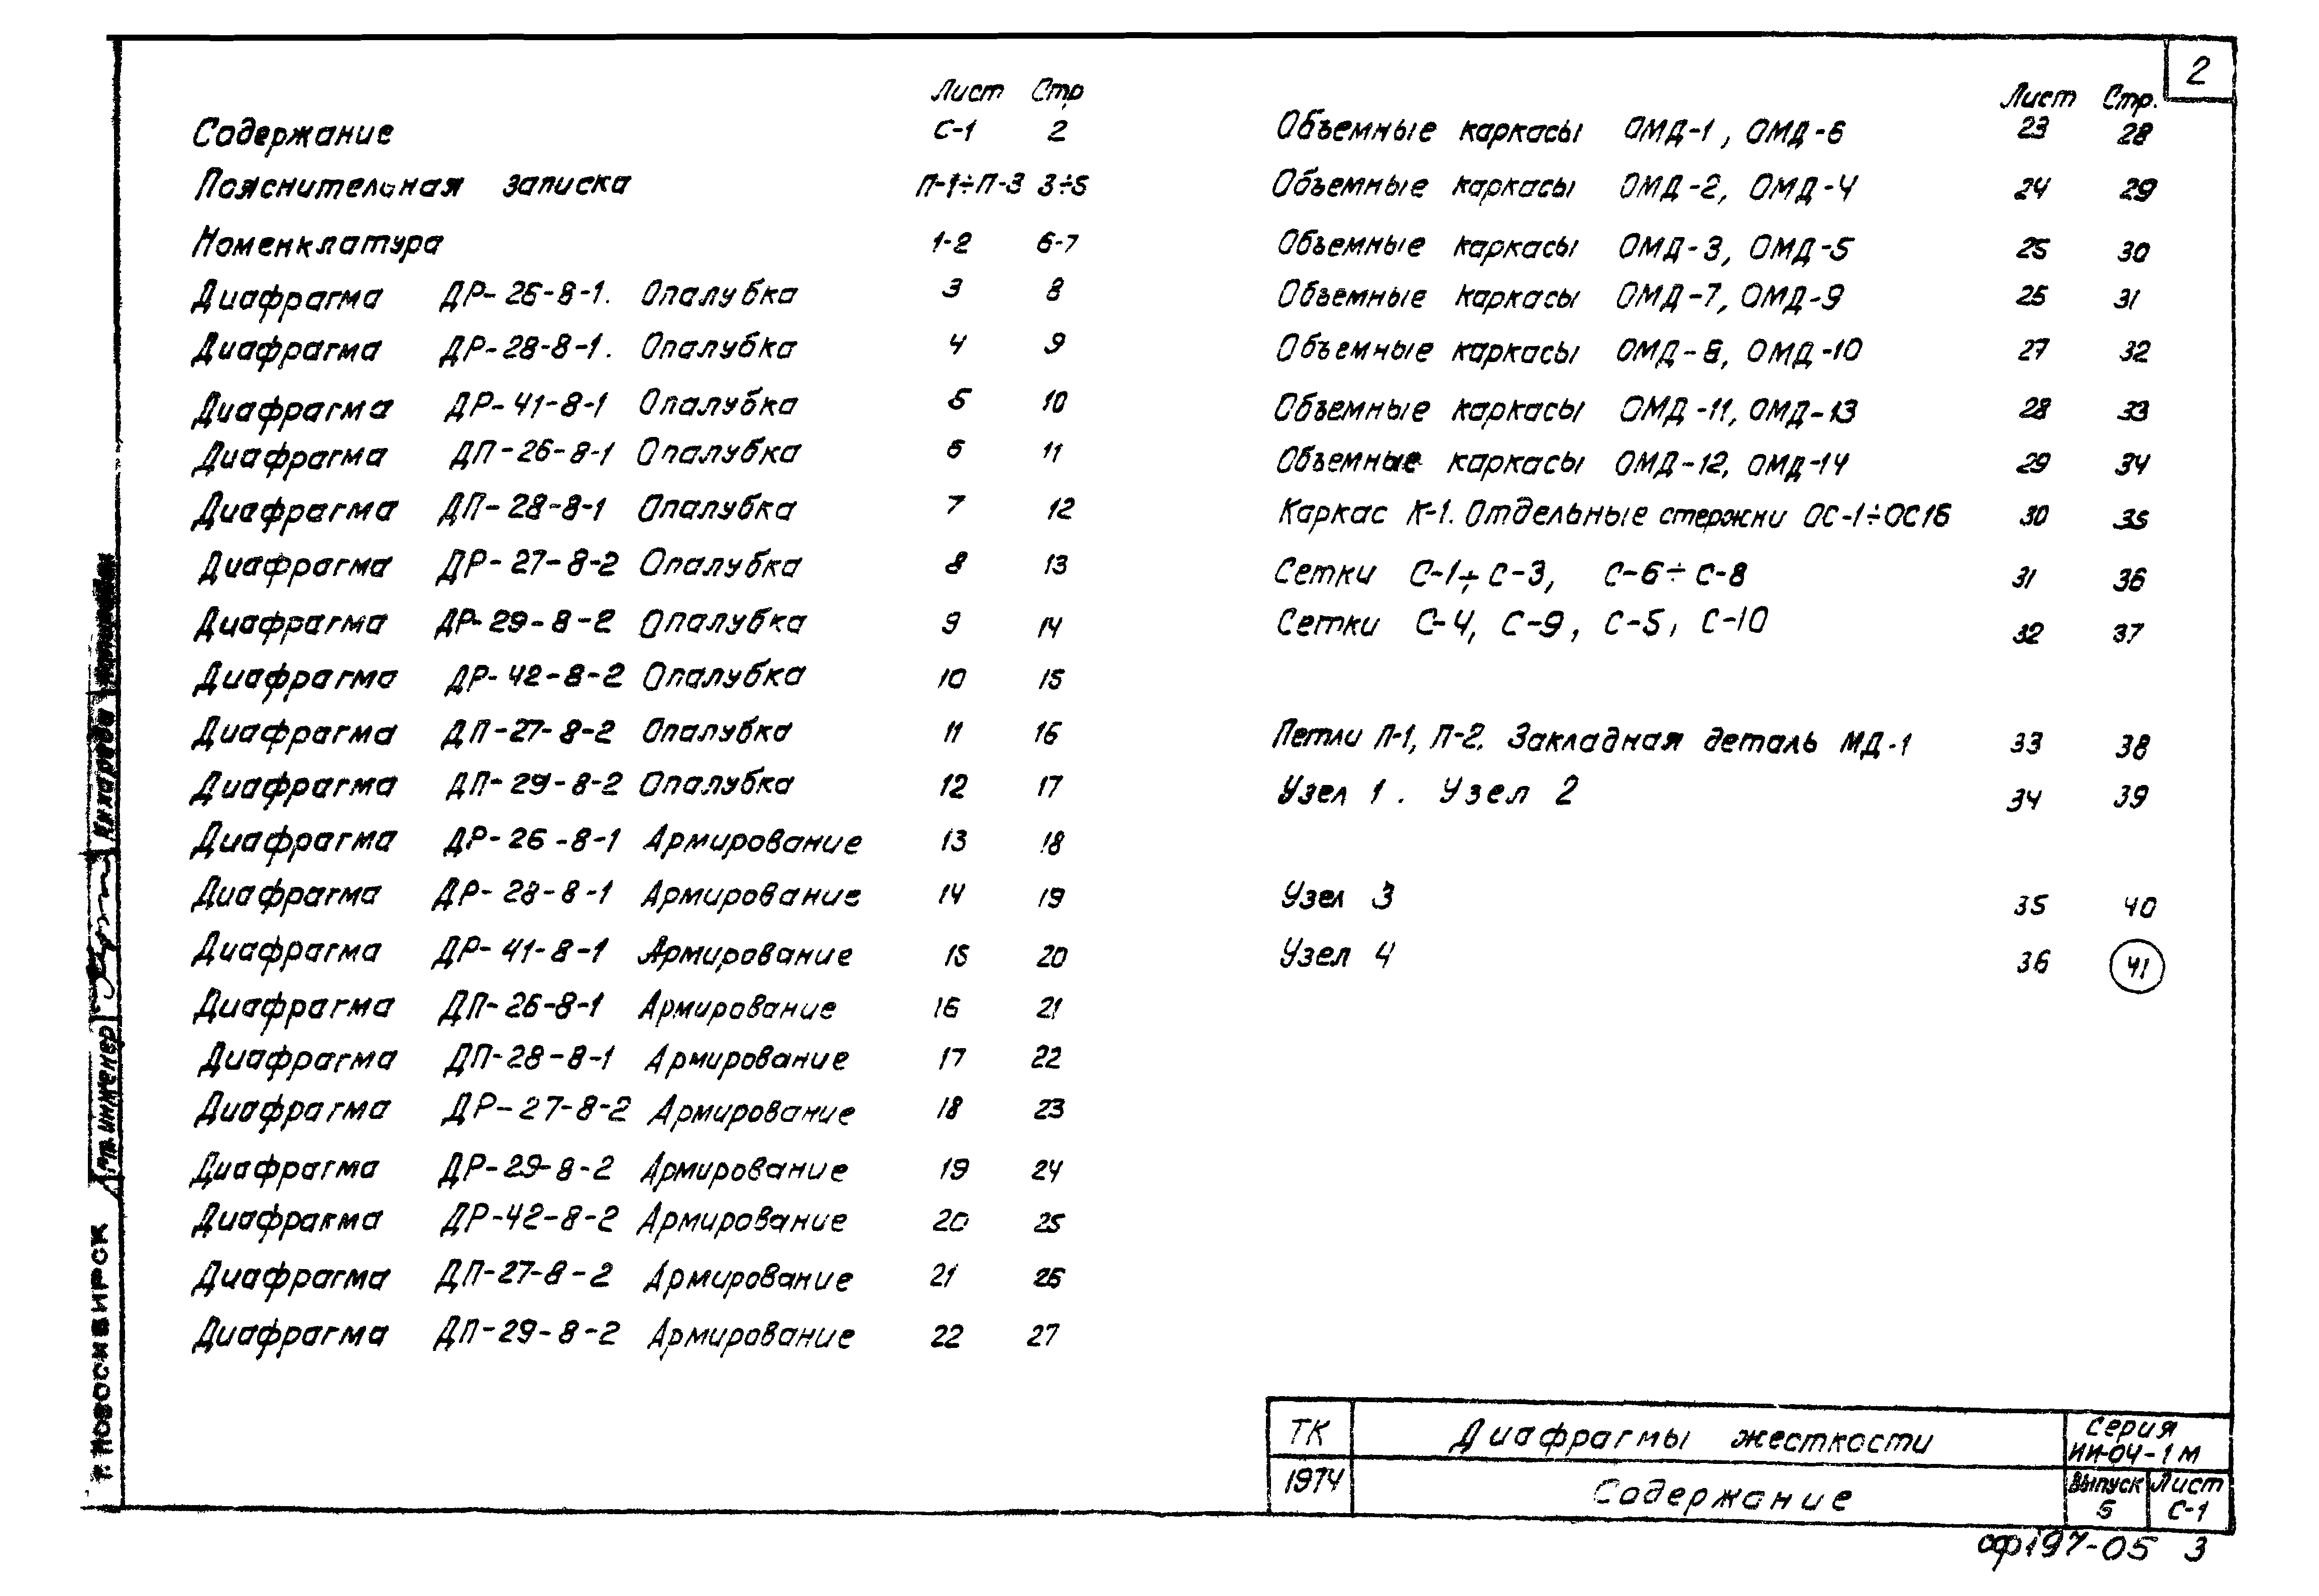 2
Лист Стр
Содержание С-1 2
Пояснительная записка П-1÷П-3 3÷5
Номенклатура 1-2 6-7
Диафрагма ДР-26-8-1. Опалубка 3 8
Диафрагма ДР-28-8-1. Опалубка 4 9
Диафрагма ДР-41-8-1 Опалубка 5 10
Диафрагма ДП-26-8-1 Опалубка 6 11
Диафрагма ДП-28-8-1 Опалубка 7 12
Диафрагма ДР-27-8-2 Опалубка 8 13
Диафрагма ДР-29-8-2 Опалубка 9 14
Диафрагма ДР-42-8-2 Опалубка 10 15
Диафрагма ДП-27-8-2 Опалубка 11 16
Диафрагма ДП-29-8-2 Опалубка 12 17
Диафрагма ДР-26-8-1 Армирование 13 18
Диафрагма ДР-28-8-1 Армирование 14 19
Диафрагма ДР-41-8-1 Армирование 15 20
Диафрагма ДП-26-8-1 Армирование 16 21
Диафрагма ДП-28-8-1 Армирование 17 22
Диафрагма ДР-27-8-2 Армирование 18 23
Диафрагма ДР-29-8-2 Армирование 19 24
Диафрагма ДР-42-8-2 Армирование 20 25
Диафрагма ДП-27-8-2 Армирование 21 26
Диафрагма ДП-29-8-2 Армирование 22 27
Лист Стр.
Объемные каркасы ОМД-1, ОМД-6 23 28
Объемные каркасы ОМД-2, ОМД-4 24 29
Объемные каркасы ОМД-3, ОМД-5 25 30
Объемные каркасы ОМД-7, ОМД-9 26 31
Объемные каркасы ОМД-8, ОМД-10 27 32
Объемные каркасы ОМД-11, ОМД-13 28 33
Объемные каркасы ОМД-12, ОМД-14 29 34
Каркас К-1. Отдельные стержни ОС-1÷ОС16 30 35
Сетки С-1÷С-3, С-6÷С-8 31 36
Сетки С-4, С-9, С-5, С-10 32 37
Петли П-1, П-2. Закладная деталь МД-1 33 38
Узел 1. Узел 2 34 39
Узел 3 35 40
Узел 4 36 41
ТК Диафрагмы жесткости Серия
ИИ-04-1м
1974 Содержание Выпуск Лист
5 С-1
сф197-05 3
г. Новосибирск
Ст. инженер